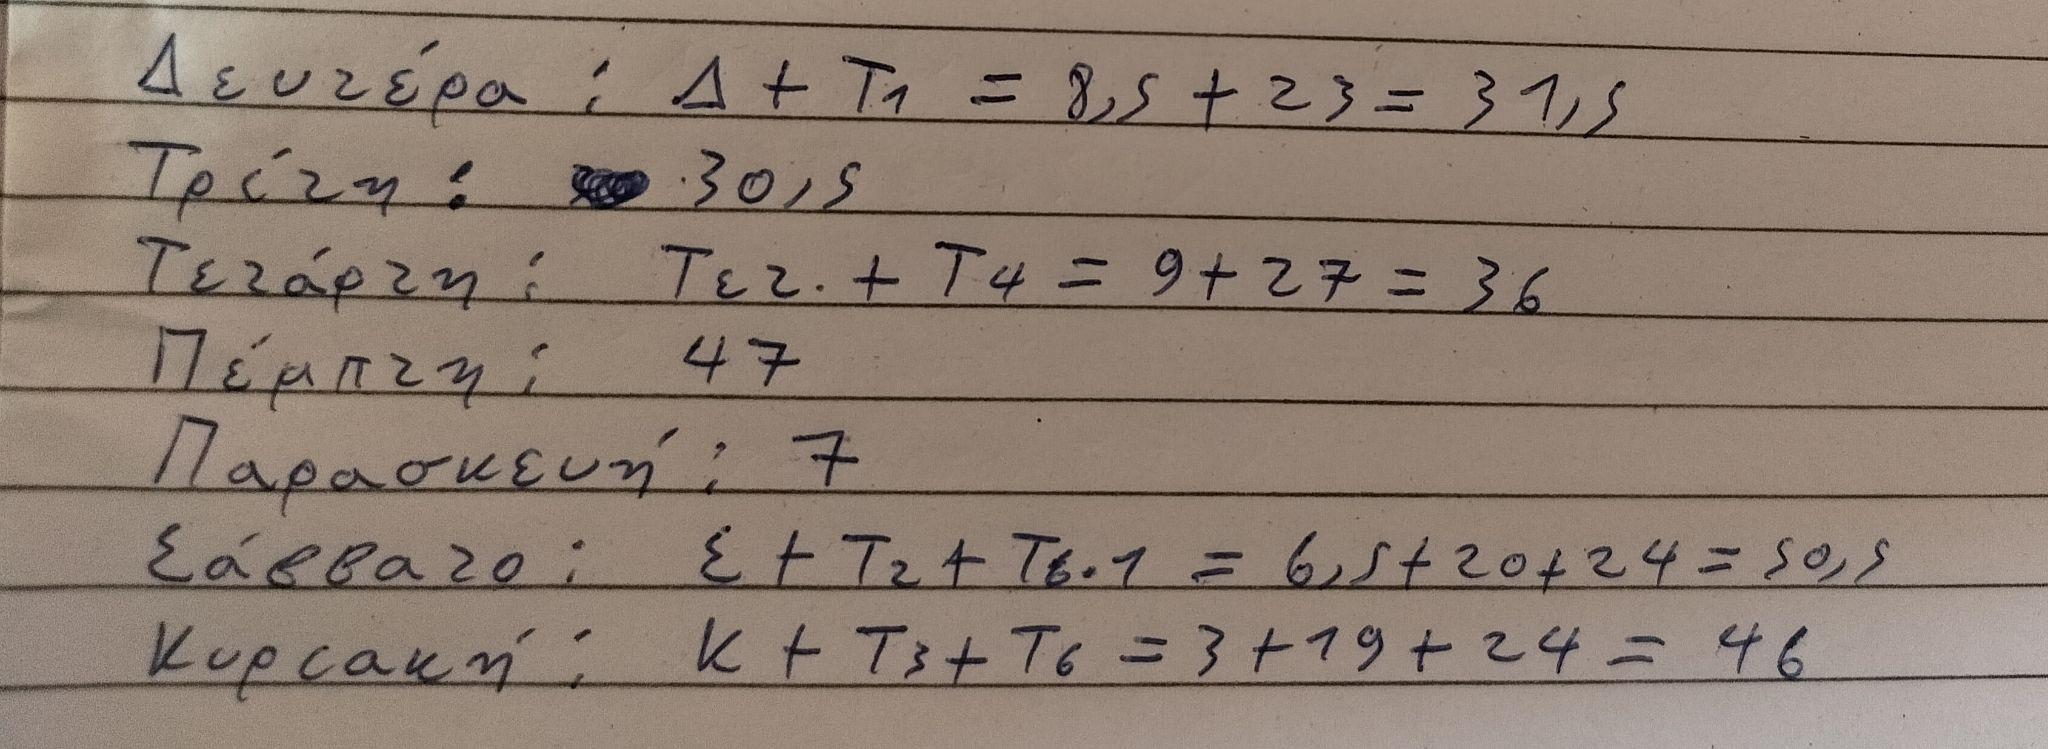 Δευτέρα: Δ + Τ1 = 8,5 + 23 = 31,5
Τρίτη: 30,5
Τετάρτη: Τετ. + Τ4 = 9 + 27 = 36
Πέμπτη: 47
Παρασκευή: 7
Σάββατο: Σ + Τ2 + Τ6.1 = 6,5 + 20 + 24 = 50,5
Κυριακή: Κ + Τ3 + Τ6 = 3 + 19 + 24 = 46